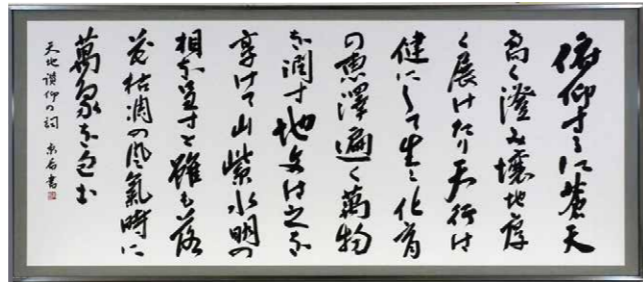 俯仰するに蒼天
高く澄み壌地厚
く展けたり天行は
健にして生々化育
の恵澤遍く萬物
を潤す地文は之を
享けて山紫水明の
相を呈すと雖も落
花枯凋の風氣時に
萬象を包む
天地讃仰の詞 書